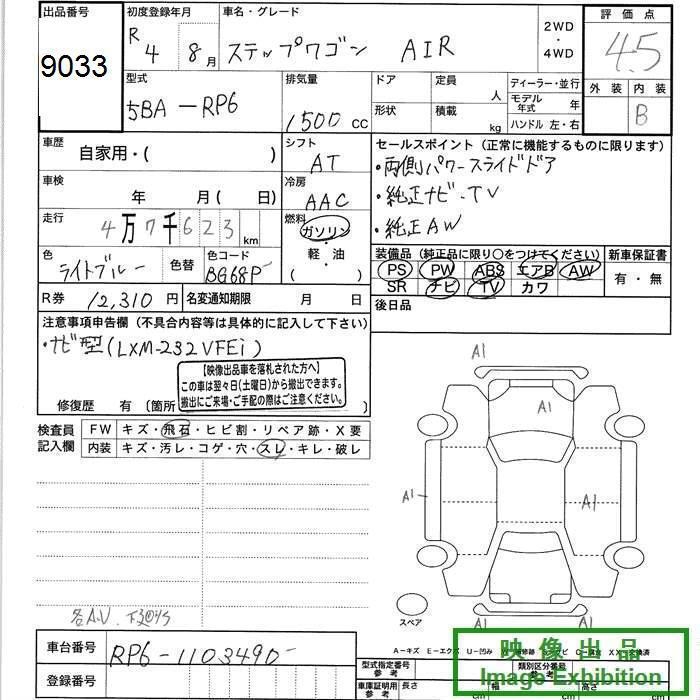 出品番号
9033
初度登録年月
R 4 8月
車名・グレード
ステップワゴン AIR
2WD
・
4WD
評価点
4.5
外装 内装
B
型式
5BA-RP6
排気量
1500 cc
ドア
定員
人
形状
積載
kg
ディーラー・並行
モデル年式 年
ハンドル 左・右
車歴
自家用・( )
シフト
AT
セールスポイント (正常に機能するものに限ります)
・両側パワースライドドア
・純正ナビ・TV
・純正AW
車検
年 月( 日)
冷房
AAC
走行
4万7千623 km
燃料
ガソリン
・
軽・油
( )
色
ライトブルー
色替
色コード
BG68P
装備品 (純正品に限り○をつけてください)
PS PW ABS エアB AW
SR ナビ TV カワ
新車保証書
有・無
R券 12,310 円
名変通知期限 月 日
後日品
注意事項申告欄 (不具合内容等は具体的に記入して下さい)
・ナビ型(LXM-232VFEi)
【映像出品車を落札された方へ】
この車は翌々日(土曜日)から搬出できます。
搬出にご来場・ご手配の際はご注意ください。
修復歴 有 (箇所
検査員記入欄
FW キズ・飛石・ヒビ割・リペア跡・X要
内装 キズ・汚レ・コゲ・穴・スレ・キレ・破レ
A1
A1
A1
A1
スペア
各A.U.
車台番号
RP6-1103490
登録番号
A-キズ E-エクボ U-凹ミ
型式指定番号
参考
類別区分番号
参考
車庫証明用
参考
長さ
幅
高さ
映像出品
Image Exhibition